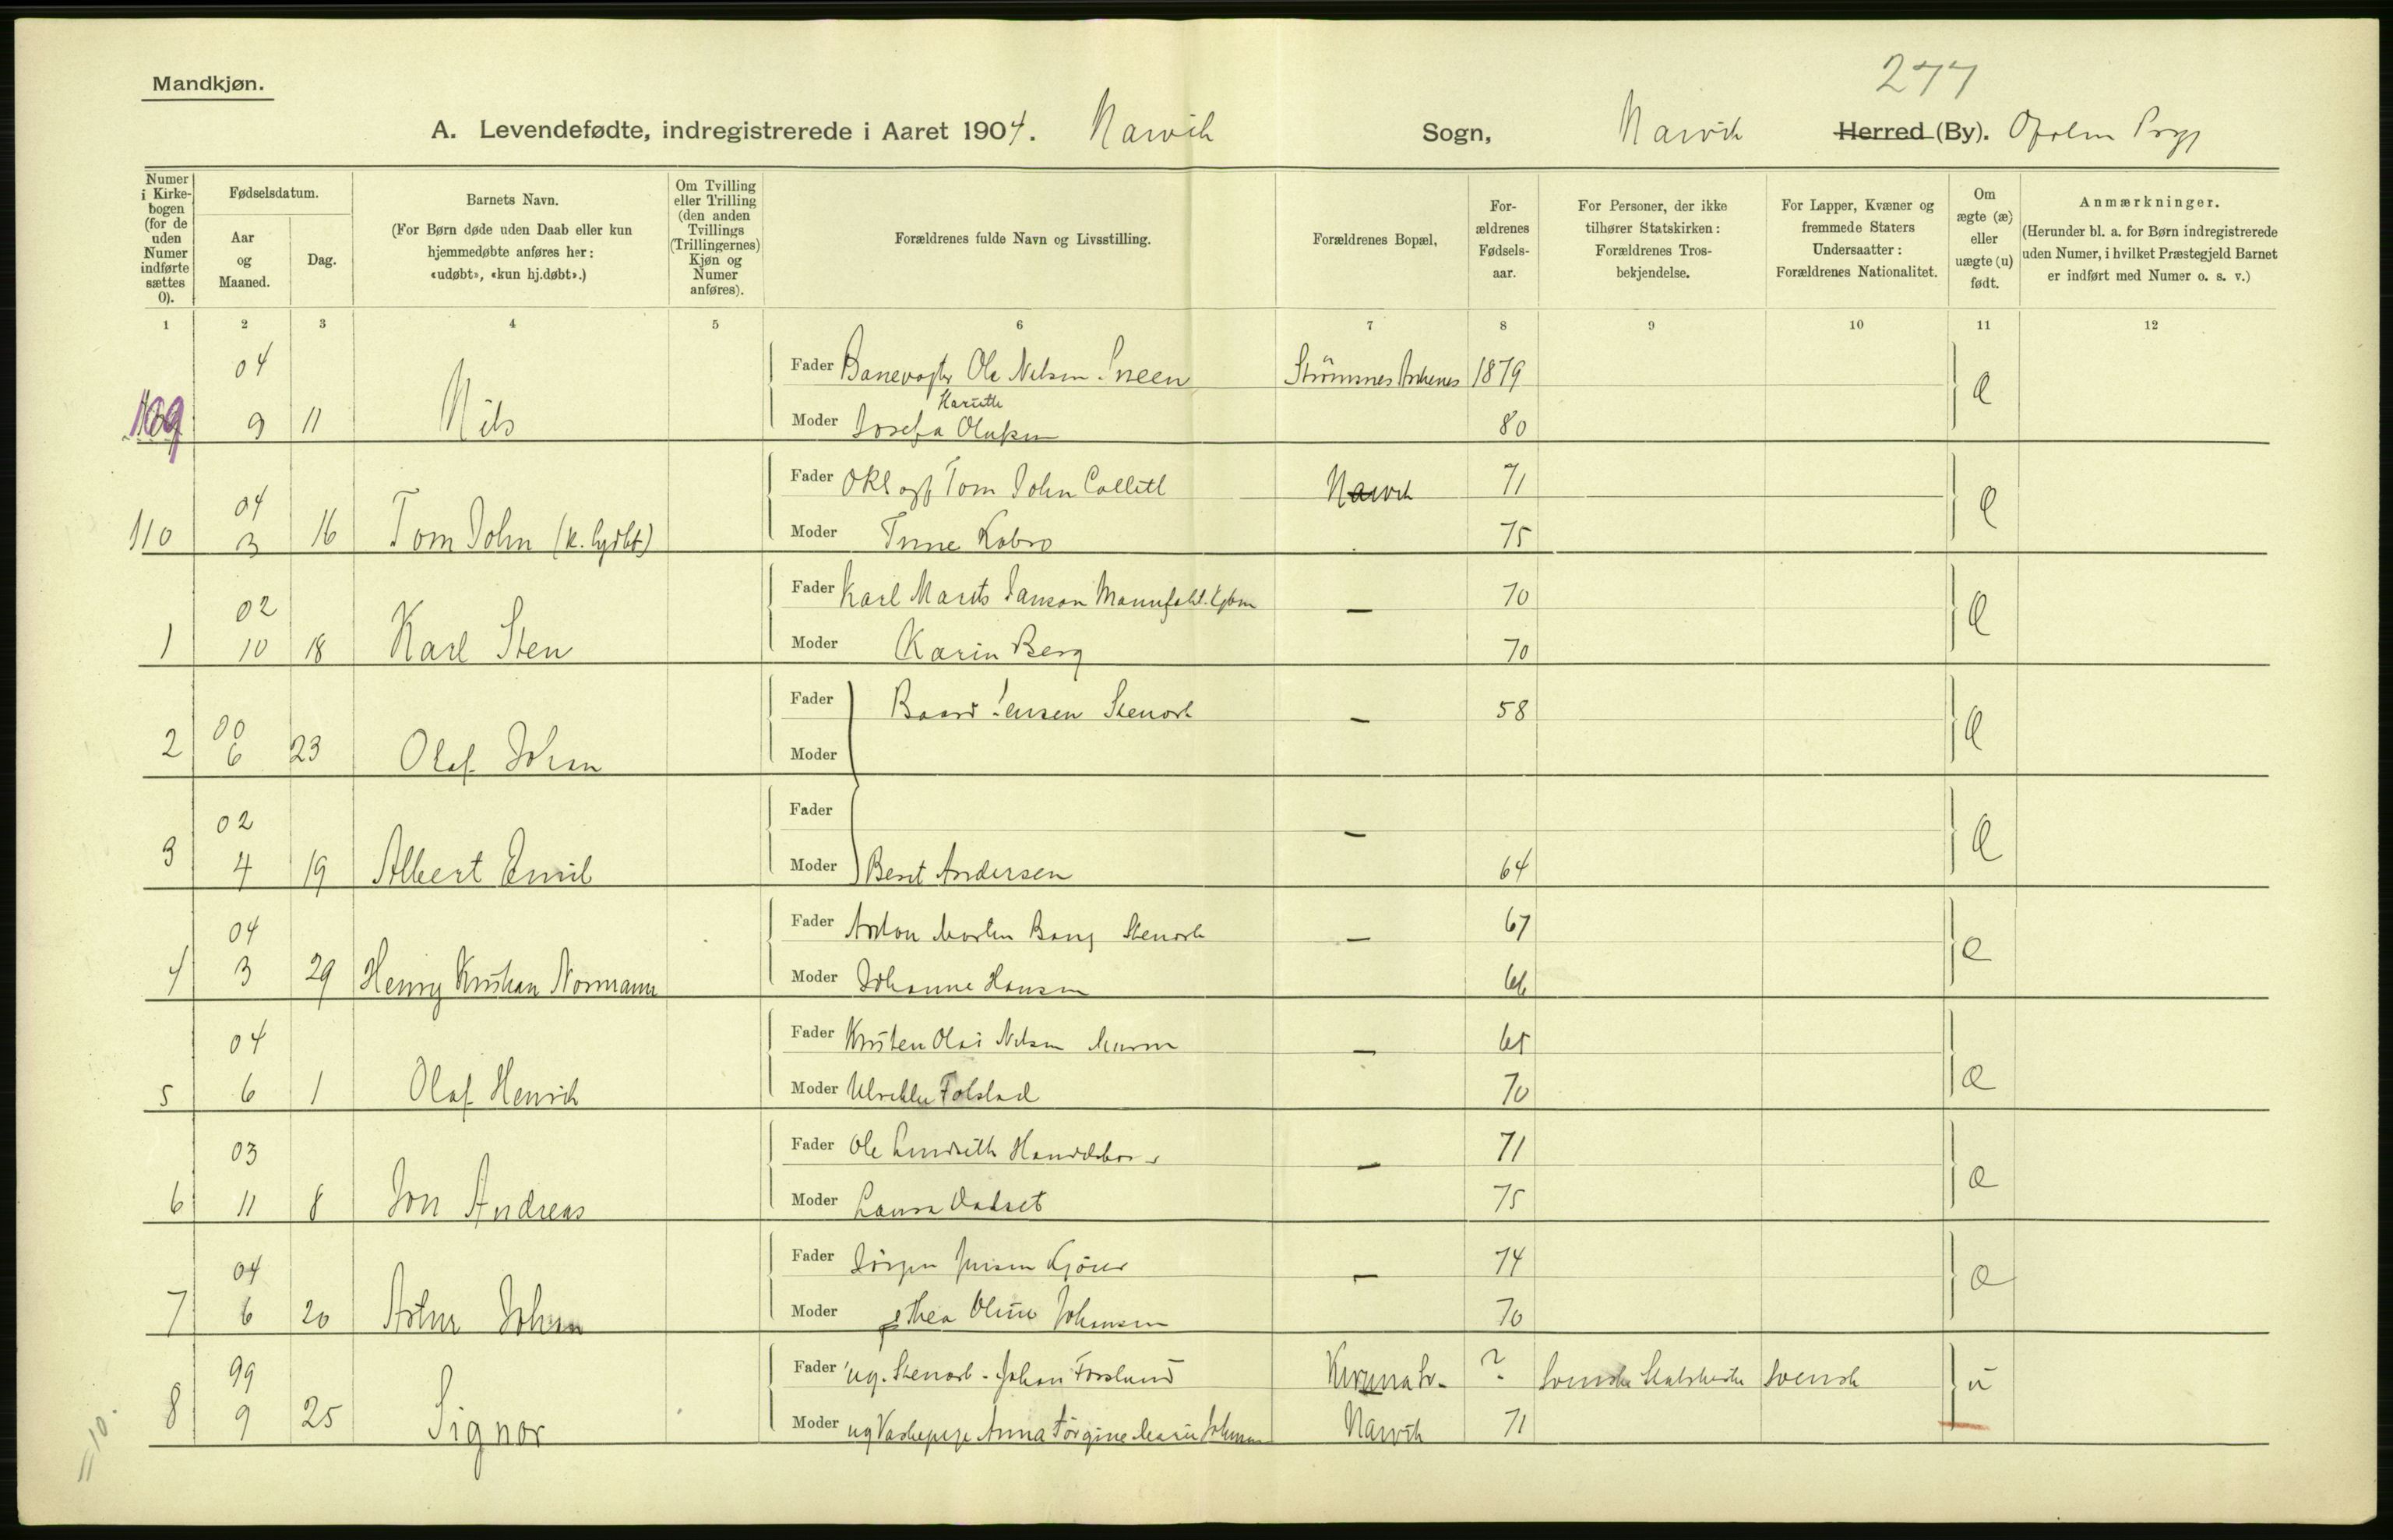 277
Mandkjøn.
A. Levendefødte, indregistrerede i Aaret 1904. Narvik Sogn, Narvik Herred (By). Ofoten Prgj
Numer i Kirkebogen (for de uden Numer indførte sættes 0).
Fødselsdatum.
Aar og Maaned.
Dag.
Barnets Navn.
(For Børn døde uden Daab eller kun hjemmedøbte anføres her: «udøbt», «kun hj.døbt».)
Om Tvilling eller Trilling (den anden Tvillings (Trillingernes) Kjøn og Numer anføres).
Forældrenes fulde Navn og Livsstilling.
Forældrenes Bopæl,
Forældrenes Fødselsaar.
For Personer, der ikke tilhører Statskirken: Forældrenes Trosbekjendelse.
For Lapper, Kvæner og fremmede Staters Undersaatter: Forældrenes Nationalitet.
Om ægte (æ) eller uægte (u) født.
Anmærkninger.
(Herunder bl. a. for Børn indregistrerede uden Numer, i hvilket Præstegjeld Barnet er indført med Numer o. s. v.)
1 2 3 4 5 6 7 8 9 10 11 12
04 Fader Banevogter Ole Nilsen Sneen Strömsnes Ankenes 1879 æ
Hariette
109 9 11 Nils Moder Josefa Olufsen 80
Fader Tom John Collett Narvik 71 æ
04
110 3 16 Tom John Moder 75
02 Fader Karl Marits Janson — 70 æ
1 10 18 Karl Sten Moder Karin Berg 70
00 Fader Baard Jensen Stenarb — 58 æ
2 6 23 Olaf Johan Moder
02 Fader — æ
3 4 19 Albert Emil Moder Berit Andersen 64
04 Fader Anton Morten Bang Stenarb — 67 æ
4 3 29 Henry Kristian Normann Moder Johanne Hansen 66
04 Fader Kristen Olai Nilsen Murer — 65 æ
5 6 1 Olaf Henrik Moder Ulrikke Folstad 70
03 Fader Ole — 71 æ
6 11 8 Jon Andreas Moder Laura 75
04 Fader Jörgen Jensen — 74 æ
7 6 20 Artur Johan Moder Thea Oline Johansen 70
99 Fader ug. Stenarb. Johan Forslund Kiruna Sv. ? svenske Statskirke svensk u
8 9 25 Signar Moder ug Vaskepige Anna Jörgine Marie Johansen Narvik 71
=10.